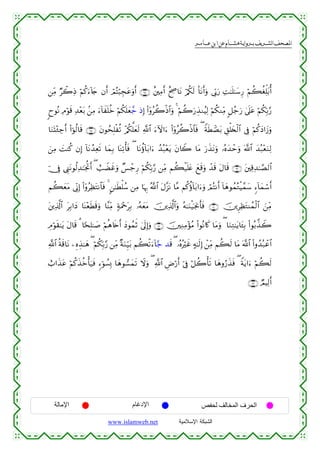 المصحف الشريف برواية هشام عن ابن عامر
أُبَلِّغُكُمْ رِسَٰلَٰتِ رَبِّى وَأَنَا۠ لَكُمْ نَاصِحٌ أَمِينٌ ۝ أَوَعَجِبْتُمْ أَن جَآءَكُمْ ذِكْرٌ مِّن
رَّبِّكُمْ عَلَىٰ رَجُلٍ مِّنكُمْ لِيُنذِرَكُمْ ۚ وَٱذْكُرُوٓا۟ إِذ جَّعَلَكُمْ خُلَفَآءَ مِنۢ بَعْدِ قَوْمِ نُوحٍ
وَزَادَكُمْ فِى ٱلْخَلْقِ بَصْۜطَةً ۖ فَٱذْكُرُوٓا۟ ءَالَآءَ ٱللَّهِ لَعَلَّكُمْ تُفْلِحُونَ ۝ قَالُوٓا۟ أَجِئْتَنَا
لِنَعْبُدَ ٱللَّهَ وَحْدَهُۥ وَنَذَرَ مَا كَانَ يَعْبُدُ ءَابَآؤُنَا ۖ فَأْتِنَا بِمَا تَعِدُنَآ إِن كُنتَ مِنَ
ٱلصَّٰدِقِينَ ۝ قَالَ قَدْ وَقَعَ عَلَيْكُم مِّن رَّبِّكُمْ رِجْسٌ وَغَضَبٌ ۖ أَتُجَٰدِلُونَنِى فِىٓ
أَسْمَآءٍ سَمَّيْتُمُوهَآ أَنتُمْ وَءَابَآؤُكُم مَّا نَزَّلَ ٱللَّهُ بِهَا مِن سُلْطَٰنٍ ۚ فَٱنتَظِرُوٓا۟ إِنِّى مَعَكُم
مِّنَ ٱلْمُنتَظِرِينَ ۝ فَأَنجَيْنَٰهُ وَٱلَّذِينَ مَعَهُۥ بِرَحْمَةٍ مِّنَّا وَقَطَعْنَا دَابِرَ ٱلَّذِينَ
كَذَّبُوا۟ بِـَٔايَٰتِنَا ۖ وَمَا كَانُوا۟ مُؤْمِنِينَ ۝ وَإِلَىٰ ثَمُودَ أَخَاهُمْ صَٰلِحًا ۗ قَالَ يَٰقَوْمِ
ٱعْبُدُوا۟ ٱللَّهَ مَا لَكُم مِّنْ إِلَٰهٍ غَيْرُهُۥ ۖ قَدْ جَآءَتْكُم بَيِّنَةٌ مِّن رَّبِّكُمْ ۖ هَٰذِهِۦ نَاقَةُ ٱللَّهِ
لَكُمْ ءَايَةً ۖ فَذَرُوهَا تَأْكُلْ فِىٓ أَرْضِ ٱللَّهِ ۖ وَلَا تَمَسُّوهَا بِسُوٓءٍ فَيَأْخُذَكُمْ عَذَابٌ
أَلِيمٌ ۝
الحرف المخالف لحفص
الإدغام
الإمالة
الشبكة الإسلامية www.islamweb.net